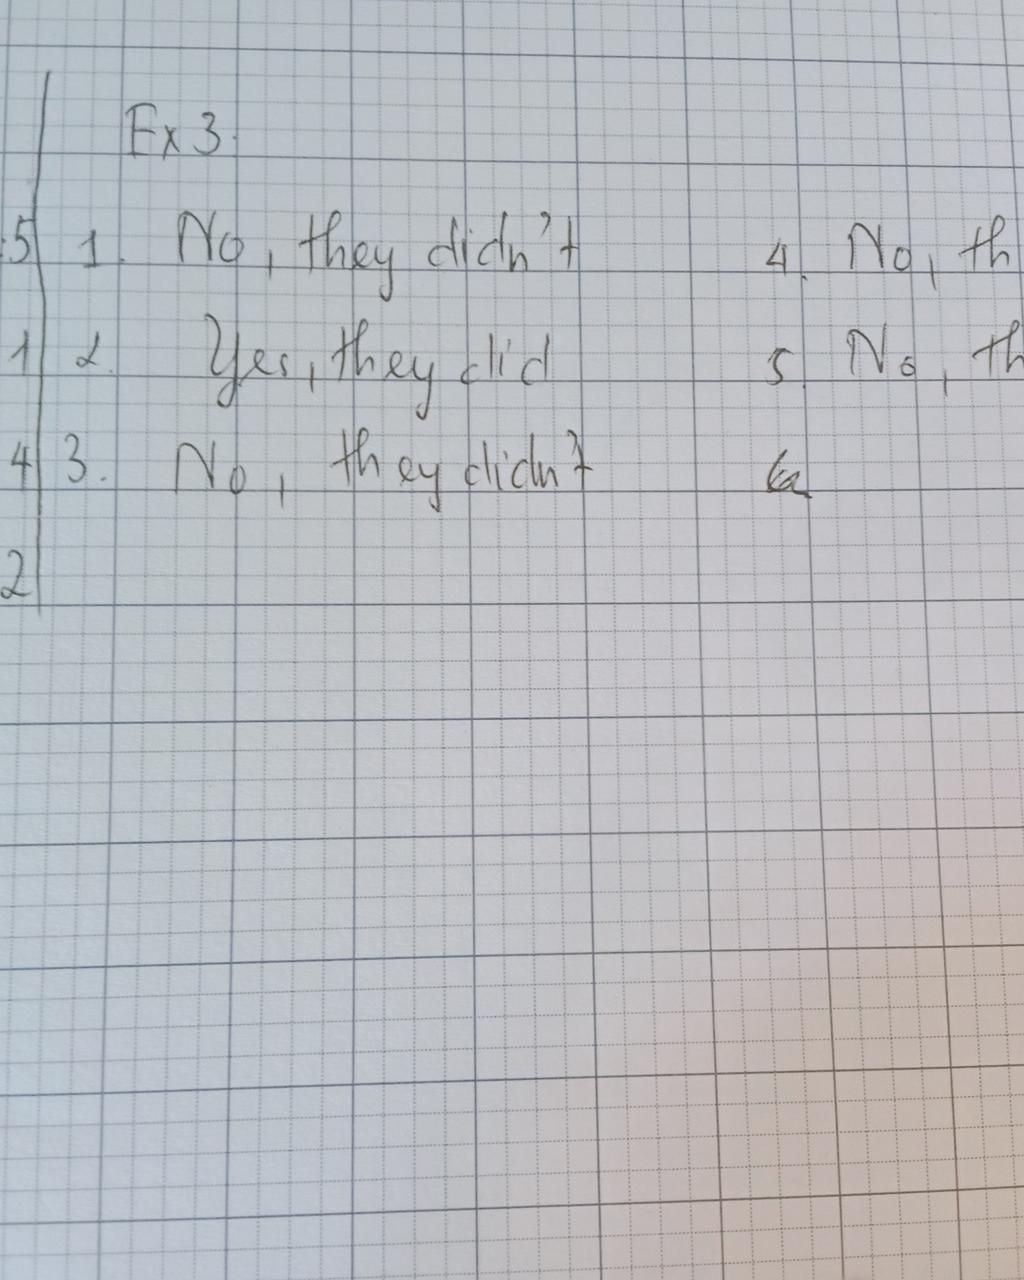 Ex 3.
.5 1. No, they didn't 4. No, th
1 2. Yes, they did 5. No, th
4 3. No, they didn't
2